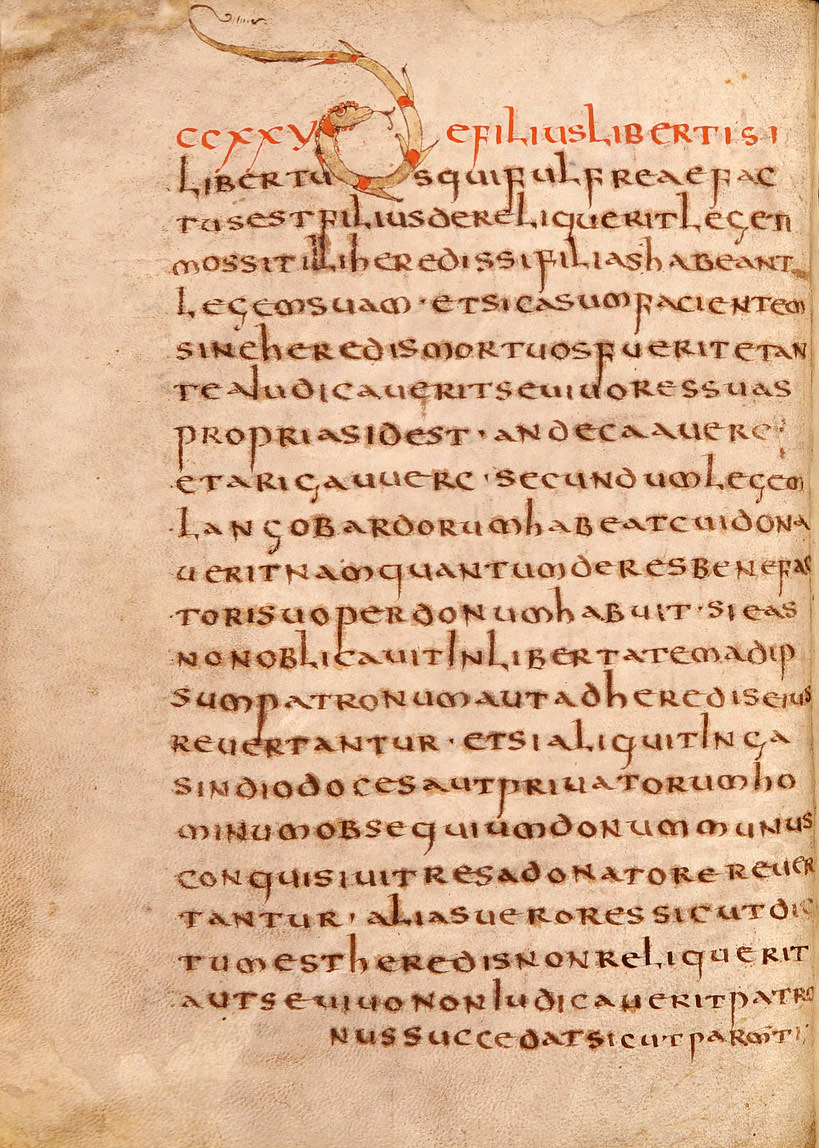 CCXXV DEFILIUSLIBERTISI
LIBERTUSQUIFULFREAEFAC
TUSESTFILIUSDERELIQUERITLEGETI
MOSSITILLIHEREDISSIFILIASHABEANT
LEGEMSUAM·ETSICASUMFACIENTEM
SINEHEREDISMORTUOSFUERITETAN
TEAIUDICAUERITSEUIUORESSUAS
PROPRIASIDEST·ANDEGAAUERE
ETARIGAUUERC·SECUNDUMLEGEM
LANGOBARDORUMHABEATCUIDONA
UERITNAMQUANTUMDERESBENEFAC
TORISUOPERDONUMHABUIT·SIEAS
NONOBLICAUITINLIBERTATEMADIP
SUMPATRONUMAUTADHEREDISEIUS
REUERTANTUR·ETSIALIQUITINGA
SINDIODOCESAUTPRIUATORUMHO
MINUMOBSEQUIUMDONUMMUNUS
CONQUISIUITRESADONATOREREUER
TANTUR,ALIASUERORESSICUTDIC
TUMESTHEREDISNONRELIQUERIT
AUTSEUIUONONIUDICAUERITPATRO
NUSSUCCEDATSICUTPARENTI;